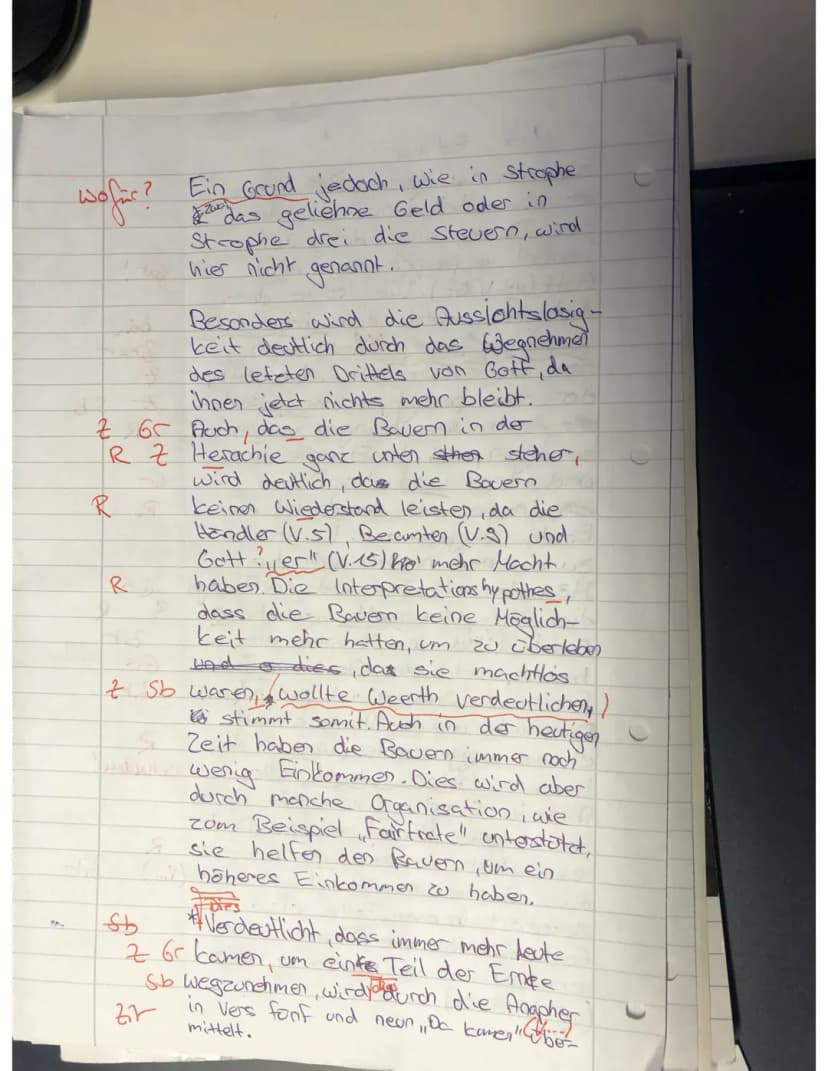 wofür? Ein Grund jedoch, wie in Strophe
zwei das geliehne Geld oder in
Strophe drei die Steuern, wird
hier nicht genannt.
Besonders wird die Aussichtslosig-
keit deutlich durch das Wegnehmen
des letzten Drittels von Gott, da
ihnen jetzt nichts mehr bleibt.
Z Gr Auch, das die Bauern in der
R Z Herachie ganz unten stehen,
wird deutlich, das die Bauern
R keinen Wiederstand leisten, da die
Händler (V.5), Beamten (V.9) und
Gott ? „er" (V.15) mehr Macht
R haben. Die Interpretationshypothes,
dass die Bauern keine Möglich-
keit mehr hatten, um zu überleben
und dies, das sie machtlos
Z Sb waren, wollte Weerth verdeutlichen,
stimmt somit. Auch in der heutigen
Zeit haben die Bauern immer noch
wenig Einkommen. Dies wird aber
durch manche Organisation, wie
zum Beispiel „Fairtrate" unterstützt,
sie helfen den Bauern, um ein
höheres Einkommen zu haben.
Dies
Sb * Verdeutlicht, dass immer mehr Leute
Z Gr kamen, um ein Teil der Ernte
Sb wegzunehmen, wird durch die Anapher
Zit in Vers fünf und neun „Da kamen" (V. ...) über-
mittelt.